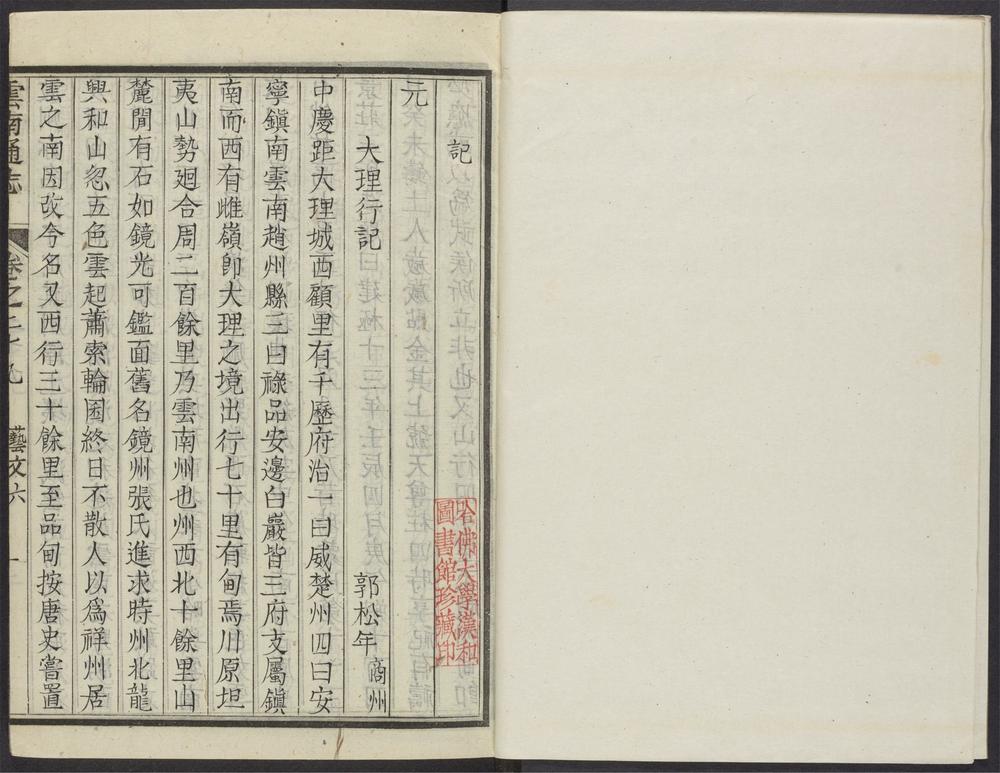 記
元
大理行記　郭松年 商州
中慶距大理城西顧里有千歷府治一曰威楚州四曰安
寧鎮南雲南趙州縣三曰祿品安邊白巖皆三府支屬鎮
南而西有雌嶺卽大理之境出行七十里有甸焉川原坦
夷山勢廻合周二百餘里乃雲南州也州西北十餘里山
麓閒有石如鏡光可鑑面舊名鏡州張氏進求時州北龍
興和山忽五色雲起蕭索輪囷終日不散人以爲祥州居
雲之南因改今名又西行三十餘里至品甸按唐史嘗置
雲南通志　卷之二十九　藝文六　一
哈佛大學漢和
圖書館珍藏印